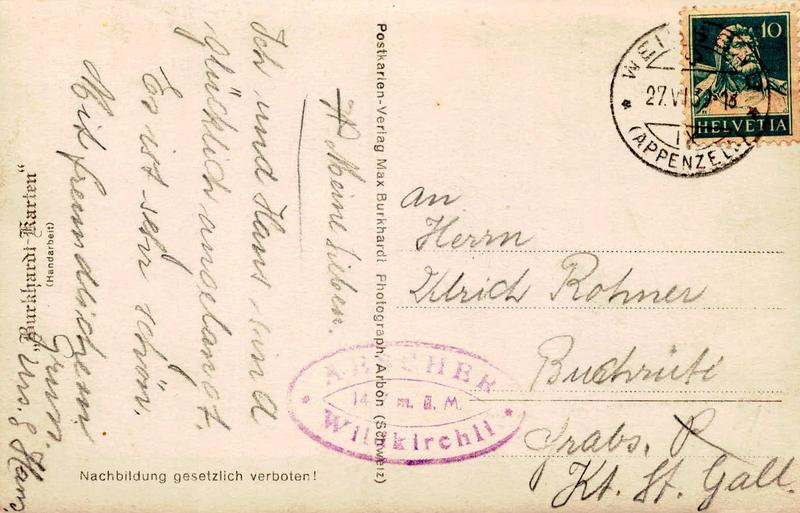 Meine Lieben.
Ich und Hans sind
glücklich angelangt.
Es ist sehr schön.
Mit freundlichem
Gruss
Hans
"Burkhardt-Karten"
(Handarbeit)
Nachbildung gesetzlich verboten!
Postkarten-Verlag Max Burkhardt Photograph, Arbon (Schweiz)
10
HELVETIA
27.VI
(APPENZELL)
An
Herrn
Ulrich Rohner
Buchrüti
Grabs.
Kt. St. Gall.
AESCHER
14 m.ü.M.
Wildkirchli